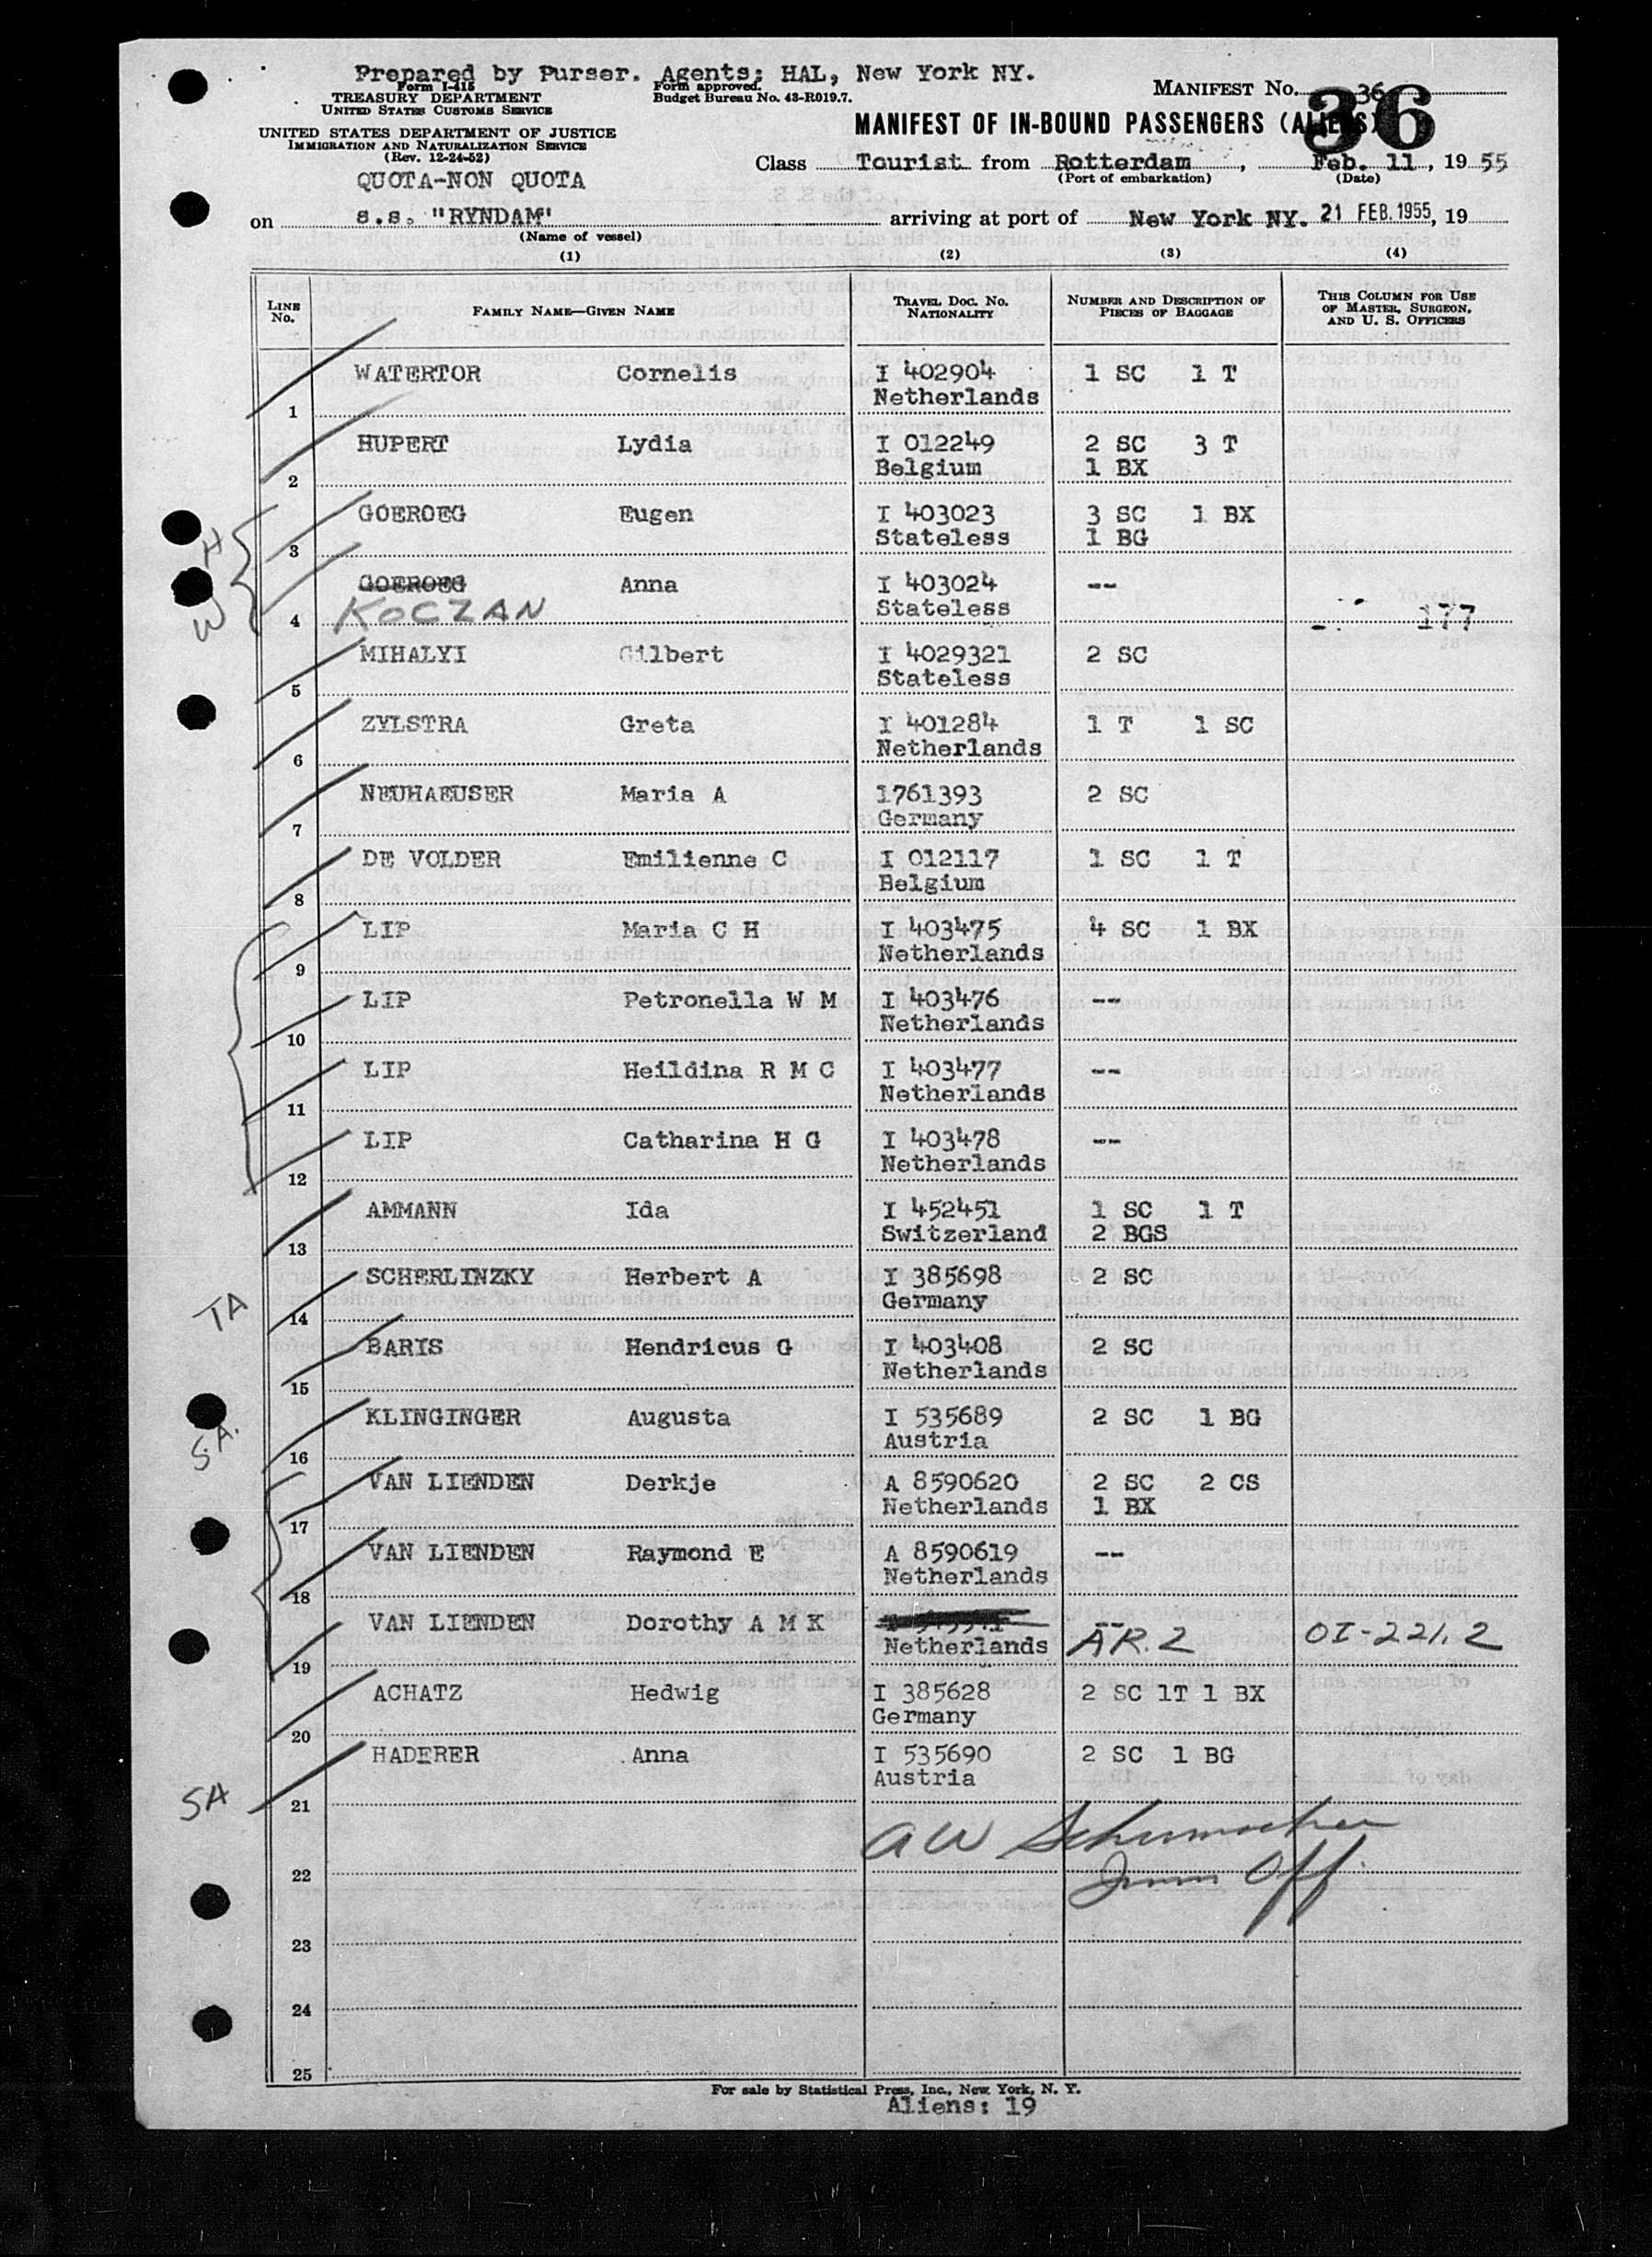 Prepared by Purser. Agents: HAL, New York NY.
Form I-415
TREASURY DEPARTMENT
UNITED STATES CUSTOMS SERVICE
Form approved.
Budget Bureau No. 43-R019.7.
MANIFEST No. 36
36
UNITED STATES DEPARTMENT OF JUSTICE
IMMIGRATION AND NATURALIZATION SERVICE
(Rev. 12-24-52)
MANIFEST OF IN-BOUND PASSENGERS (ALIENS)
Class Tourist from Rotterdam, Feb. 11, 1955
(Port of embarkation) (Date)
QUOTA-NON QUOTA
on s.s. "RYNDAM" arriving at port of New York NY. 21 FEB. 1955, 19
(Name of vessel)
(1) (2) (3) (4)
LINE No. FAMILY NAME—GIVEN NAME TRAVEL DOC. NO. NATIONALITY NUMBER AND DESCRIPTION OF PIECES OF BAGGAGE THIS COLUMN FOR USE OF MASTER, SURGEON, AND U. S. OFFICERS
WATERTOR Cornelis I 402904 1 SC 1 T
1 Netherlands
HUPERT Lydia I 012249 2 SC 3 T
2 Belgium 1 BX
GOEROEG Eugen I 403023 3 SC 1 BX
H 3 Stateless 1 BG
GOEROEG Anna I 403024 --
W 4 KOCZAN Stateless 177
MIHALYI Gilbert I 4029321 2 SC
5 Stateless
ZYLSTRA Greta I 401284 1 T 1 SC
6 Netherlands
NEUHAEUSER Maria A 1761393 2 SC
7 Germany
DE VOLDER Emilienne C I 012117 1 SC 1 T
8 Belgium
LIP Maria C H I 403475 4 SC 1 BX
9 Netherlands
LIP Petronella W M I 403476 --
10 Netherlands
LIP Heildina R M C I 403477 --
11 Netherlands
LIP Catharina H G I 403478 --
12 Netherlands
AMMANN Ida I 452451 1 SC 1 T
13 Switzerland 2 BGS
SCHERLINZKY Herbert A I 385698 2 SC
TA 14 Germany
BARIS Hendricus G I 403408 2 SC
15 Netherlands
KLINGINGER Augusta I 535689 2 SC 1 BG
S.A. 16 Austria
VAN LIENDEN Derkje A 8590620 2 SC 2 CS
17 Netherlands 1 BX
VAN LIENDEN Raymond E A 8590619 --
18 Netherlands
VAN LIENDEN Dorothy A M K --
19 Netherlands AR.2 OI-221.2
ACHATZ Hedwig I 385628 2 SC 1T 1 BX
20 Germany
HADERER Anna I 535690 2 SC 1 BG
SA 21 Austria
AW Schumacher
22 Imm Off
23
24
25
For sale by Statistical Press, Inc., New York, N. Y.
Aliens: 19